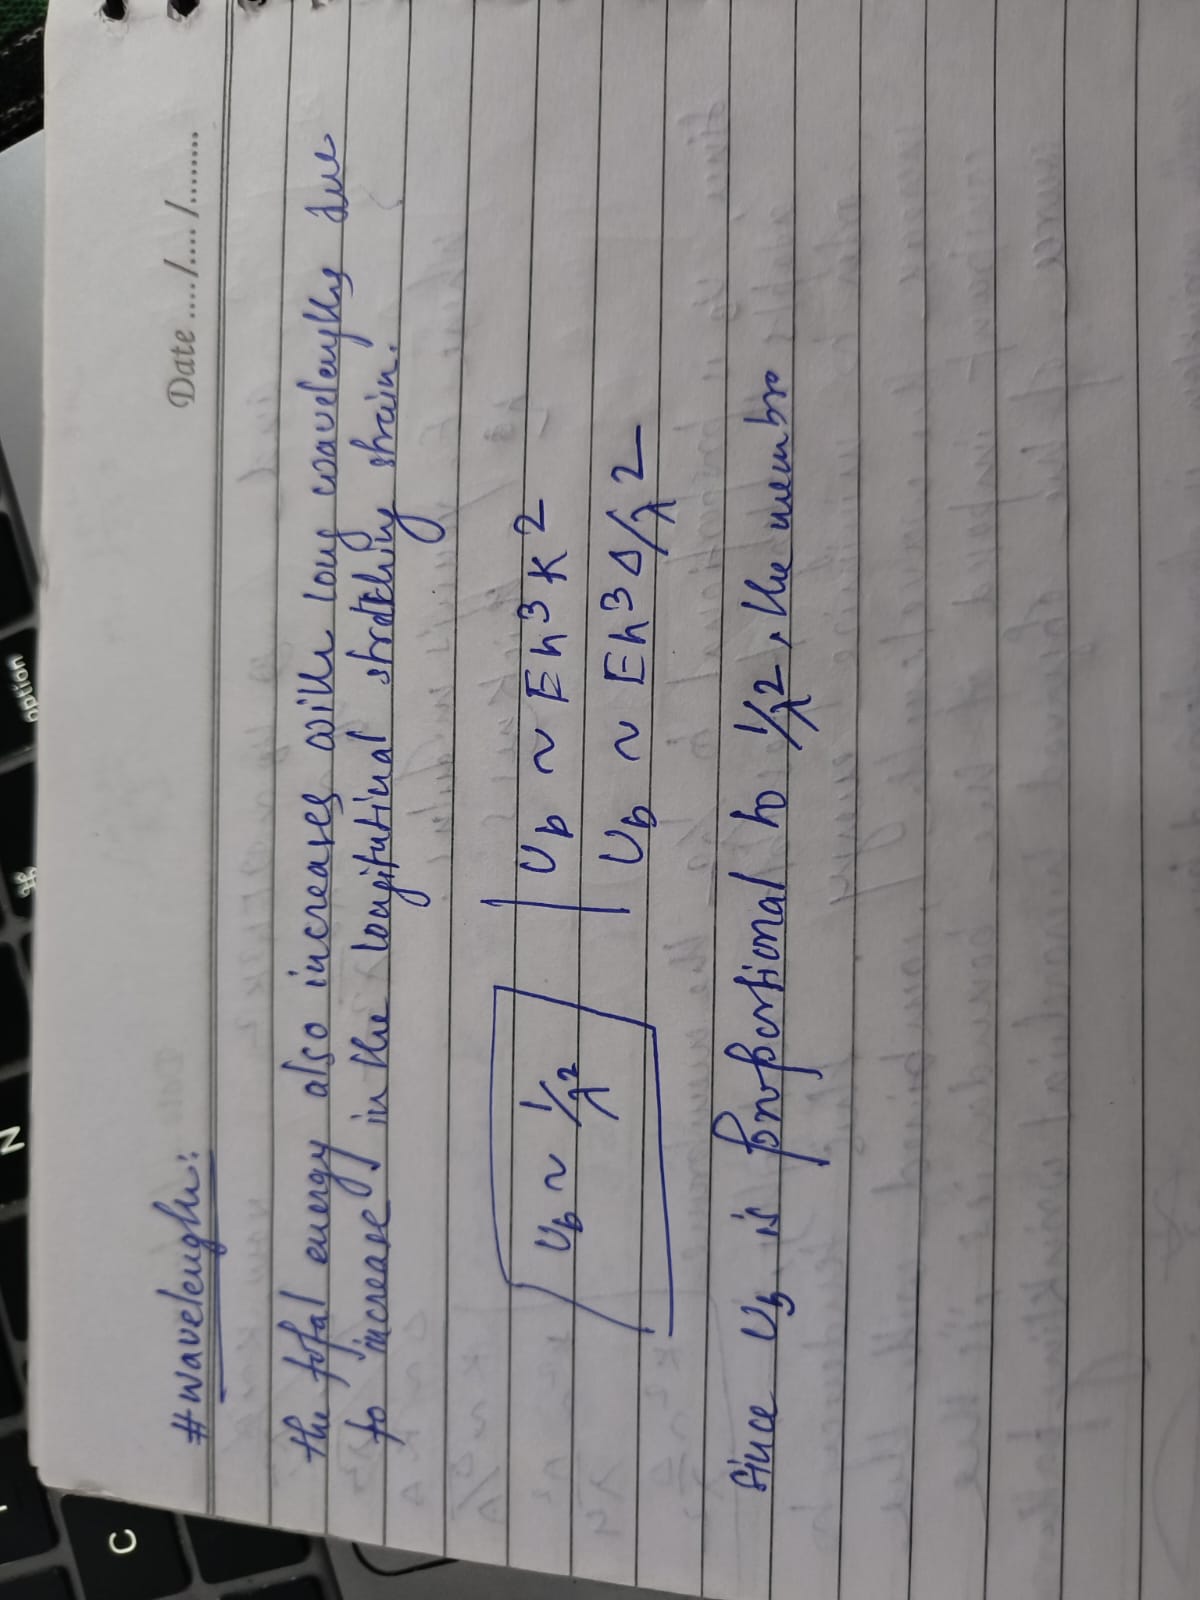 Date ..../..../........
#wavelength:
the total energy also increases with long wavelengths due
to increase in the longitutinal stretching strain.
Ub ~ 1/λ2 | Ub ~ Eh3 K2
Ub ~ Eh3 Δ/λ2
since Ub is proportional to 1/λ2, the membr
option
⌘
N
C